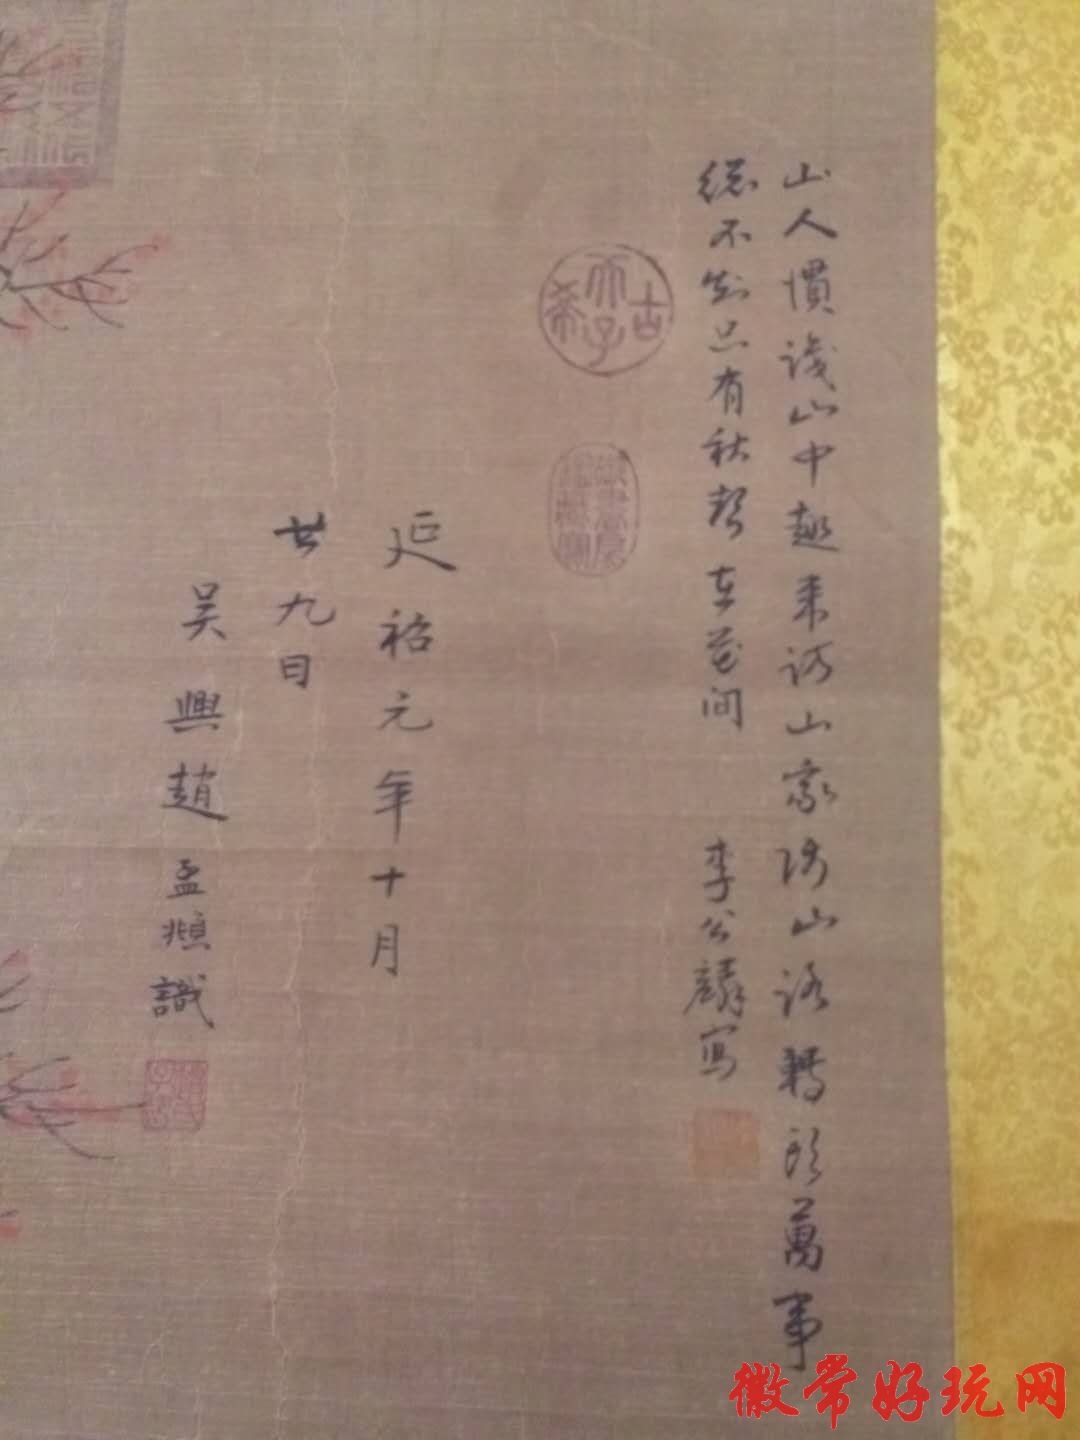 山人慣識山中趣來訪山家傍山路轉頭萬事
總不知只有秋聲在荒間
李公麟寫
古希天子
延祐元年十月
廿九日
吳興趙孟頫識
徽常好玩网